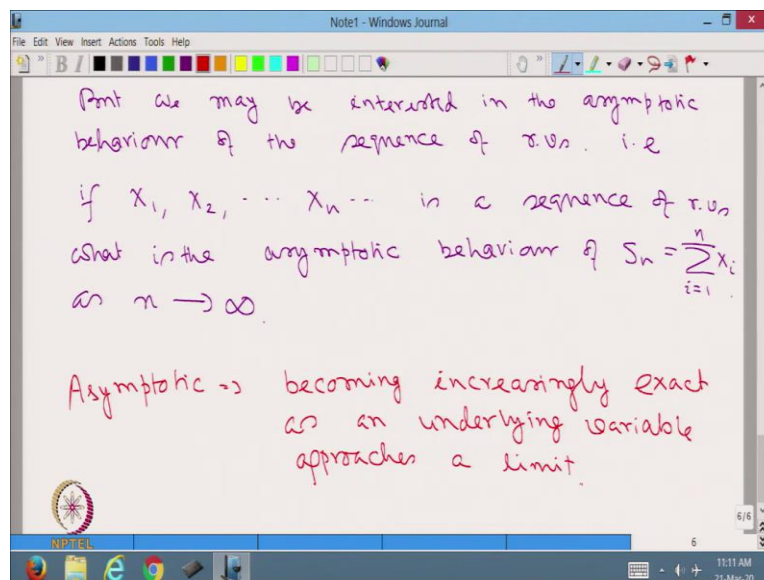 Note1 - Windows Journal
File Edit View Insert Actions Tools Help
B I
But we may be interested in the asymptotic
behaviour of the sequence of r.vs. i.e
if X₁, X₂, ... Xₙ ... is a sequence of r.vs
what is the asymptotic behaviour of Sₙ = ∑ᵢ₌₁ⁿ Xᵢ
as n → ∞.
Asymptotic => becoming increasingly exact
as an underlying variable
approaches a limit.
NPTEL
6/6
6
11:11 AM
21-Mar-20